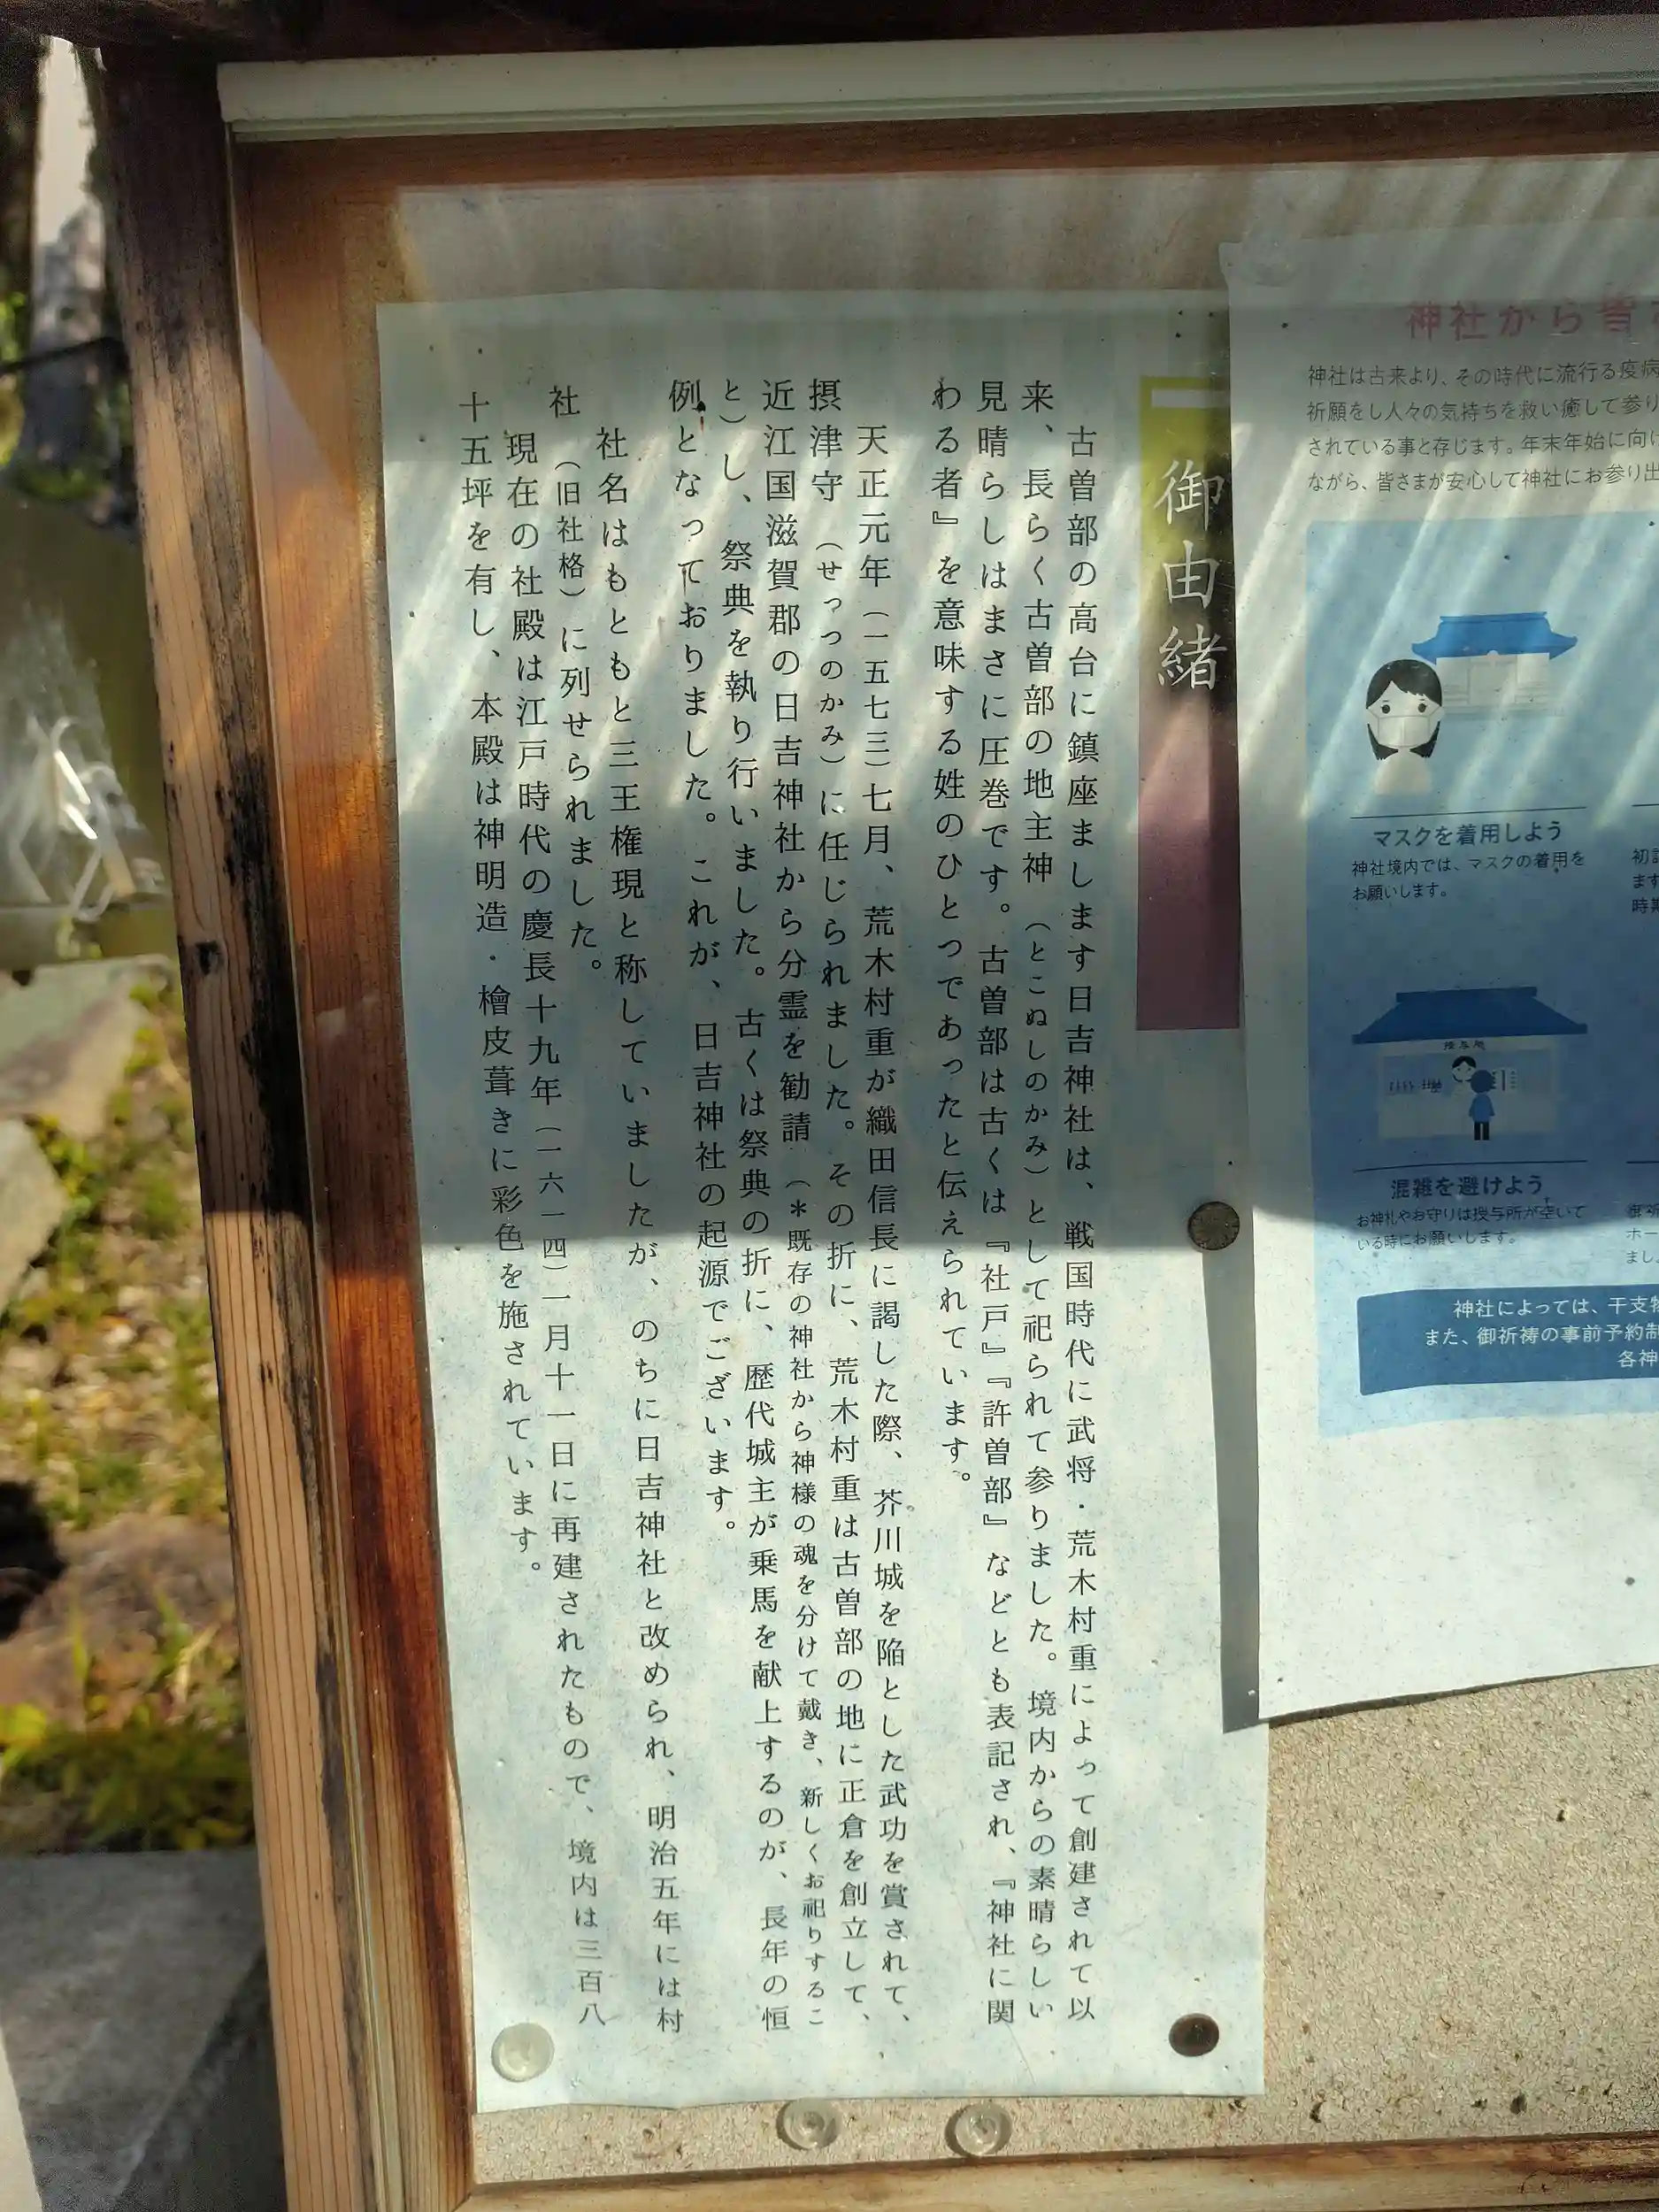 御由緒
古曽部の高台に鎮座まします日吉神社は、戦国時代に武将・荒木村重によって創建されて以
来、長らく古曽部の地主神（とこぬしのかみ）として祀られて参りました。境内からの素晴らしい
見晴らしはまさに圧巻です。古曽部は古くは『社戸』『許曽部』などとも表記され、『神社に関
わる者』を意味する姓のひとつであったと伝えられています。
天正元年（一五七三）七月、荒木村重が織田信長に謁した際、芥川城を陥とした武功を賞されて、
摂津守（せっつのかみ）に任じられました。その折に、荒木村重は古曽部の地に正倉を創立して、
近江国滋賀郡の日吉神社から分霊を勧請（＊既存の神社から神様の魂を分けて戴き、新しくお祀りするこ
と）し、祭典を執り行いました。古くは祭典の折に、歴代城主が乗馬を献上するのが、長年の恒
例となっておりました。これが、日吉神社の起源でございます。
社名はもともと三王権現と称していましたが、のちに日吉神社と改められ、明治五年には村
社（旧社格）に列せられました。
現在の社殿は江戸時代の慶長十九年（一六一四）一月十一日に再建されたもので、境内は三百八
十五坪を有し、本殿は神明造・檜皮葺きに彩色を施されています。
神社から皆さ
神社は古来より、その時代に流行る疫病
祈願をし人々の気持ちを救い癒して参り
されている事と存じます。年末年始に向け
ながら、皆さまが安心して神社にお参り出
マスクを着用しよう
神社境内では、マスクの着用を
お願いします。
初詣
ます
時期
授与所
混雑を避けよう
お神札やお守りは授与所が空いて
いる時にお願いします。
御祈
ホー
まし
神社によっては、干支物
また、御祈祷の事前予約制
各神